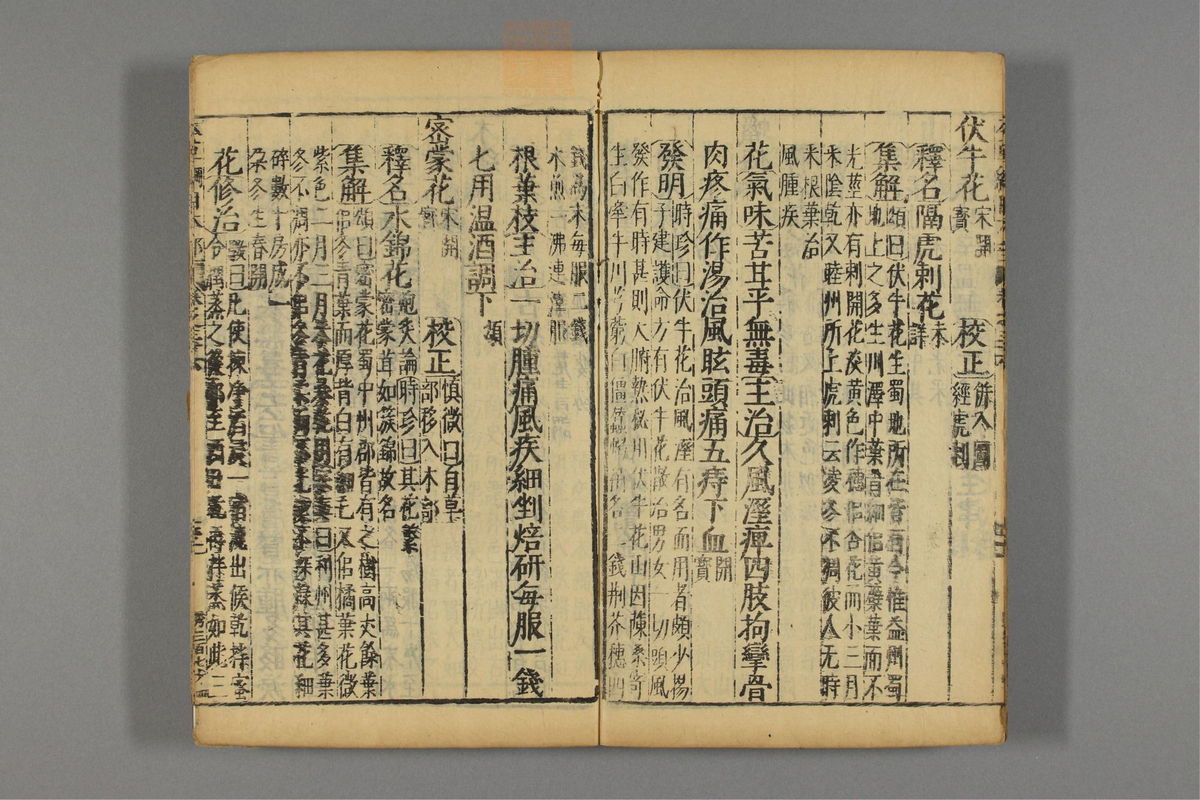 伏牛花宋開寶 校正併入圖經虎刺
釋名隔虎刺花未詳
集解頌曰伏牛花生蜀地所在皆有今惟益州蜀
地上之多生川澤中葉青細似黃蘗葉而不
光莖亦有刺開花淡黃色作穗似杏花而小三月
采陰乾又睦州所上虎刺云凌冬不凋彼人无時
采根葉治
風腫疾
花氣味苦甘平無毒主治久風溼痺四肢拘攣骨
肉疼痛作湯治風眩頭痛五痔下血開寶
發明時珍曰伏牛花治風溼有名而用者頗少楊
子建護命方有伏牛花散治男女一切頭風
發作有時甚則大腑熱秘用伏牛花山茵陳桑寄
生白牽牛川芎藭白僵蠶蜈蚣各 錢荆芥穗四
錢為末每服二錢
水煎一沸連滓服
根葉枝主治一切腫痛風疾細剉焙研每服一錢
匕用温酒調下頌
密蒙花宋開寶 校正慎微曰自草部移入木部
釋名水錦花炮炙論時珍曰其花繁
密蒙茸如簇錦故名
集解頌曰密蒙花蜀中州郡皆有之樹高丈餘葉
似冬青葉而厚背白有細毛又似橘葉花微
紫色二月三月采花暴乾用宗奭曰利州甚多葉
冬不凋亦不似冬青柔而不光潔淺綠其花細
碎數十房成一
朵冬生春開
花修治斅曰凡使揀净酒浸一宿漉出候乾拌蜜
令潤蒸之從卯至酉日乾再拌蒸如此三